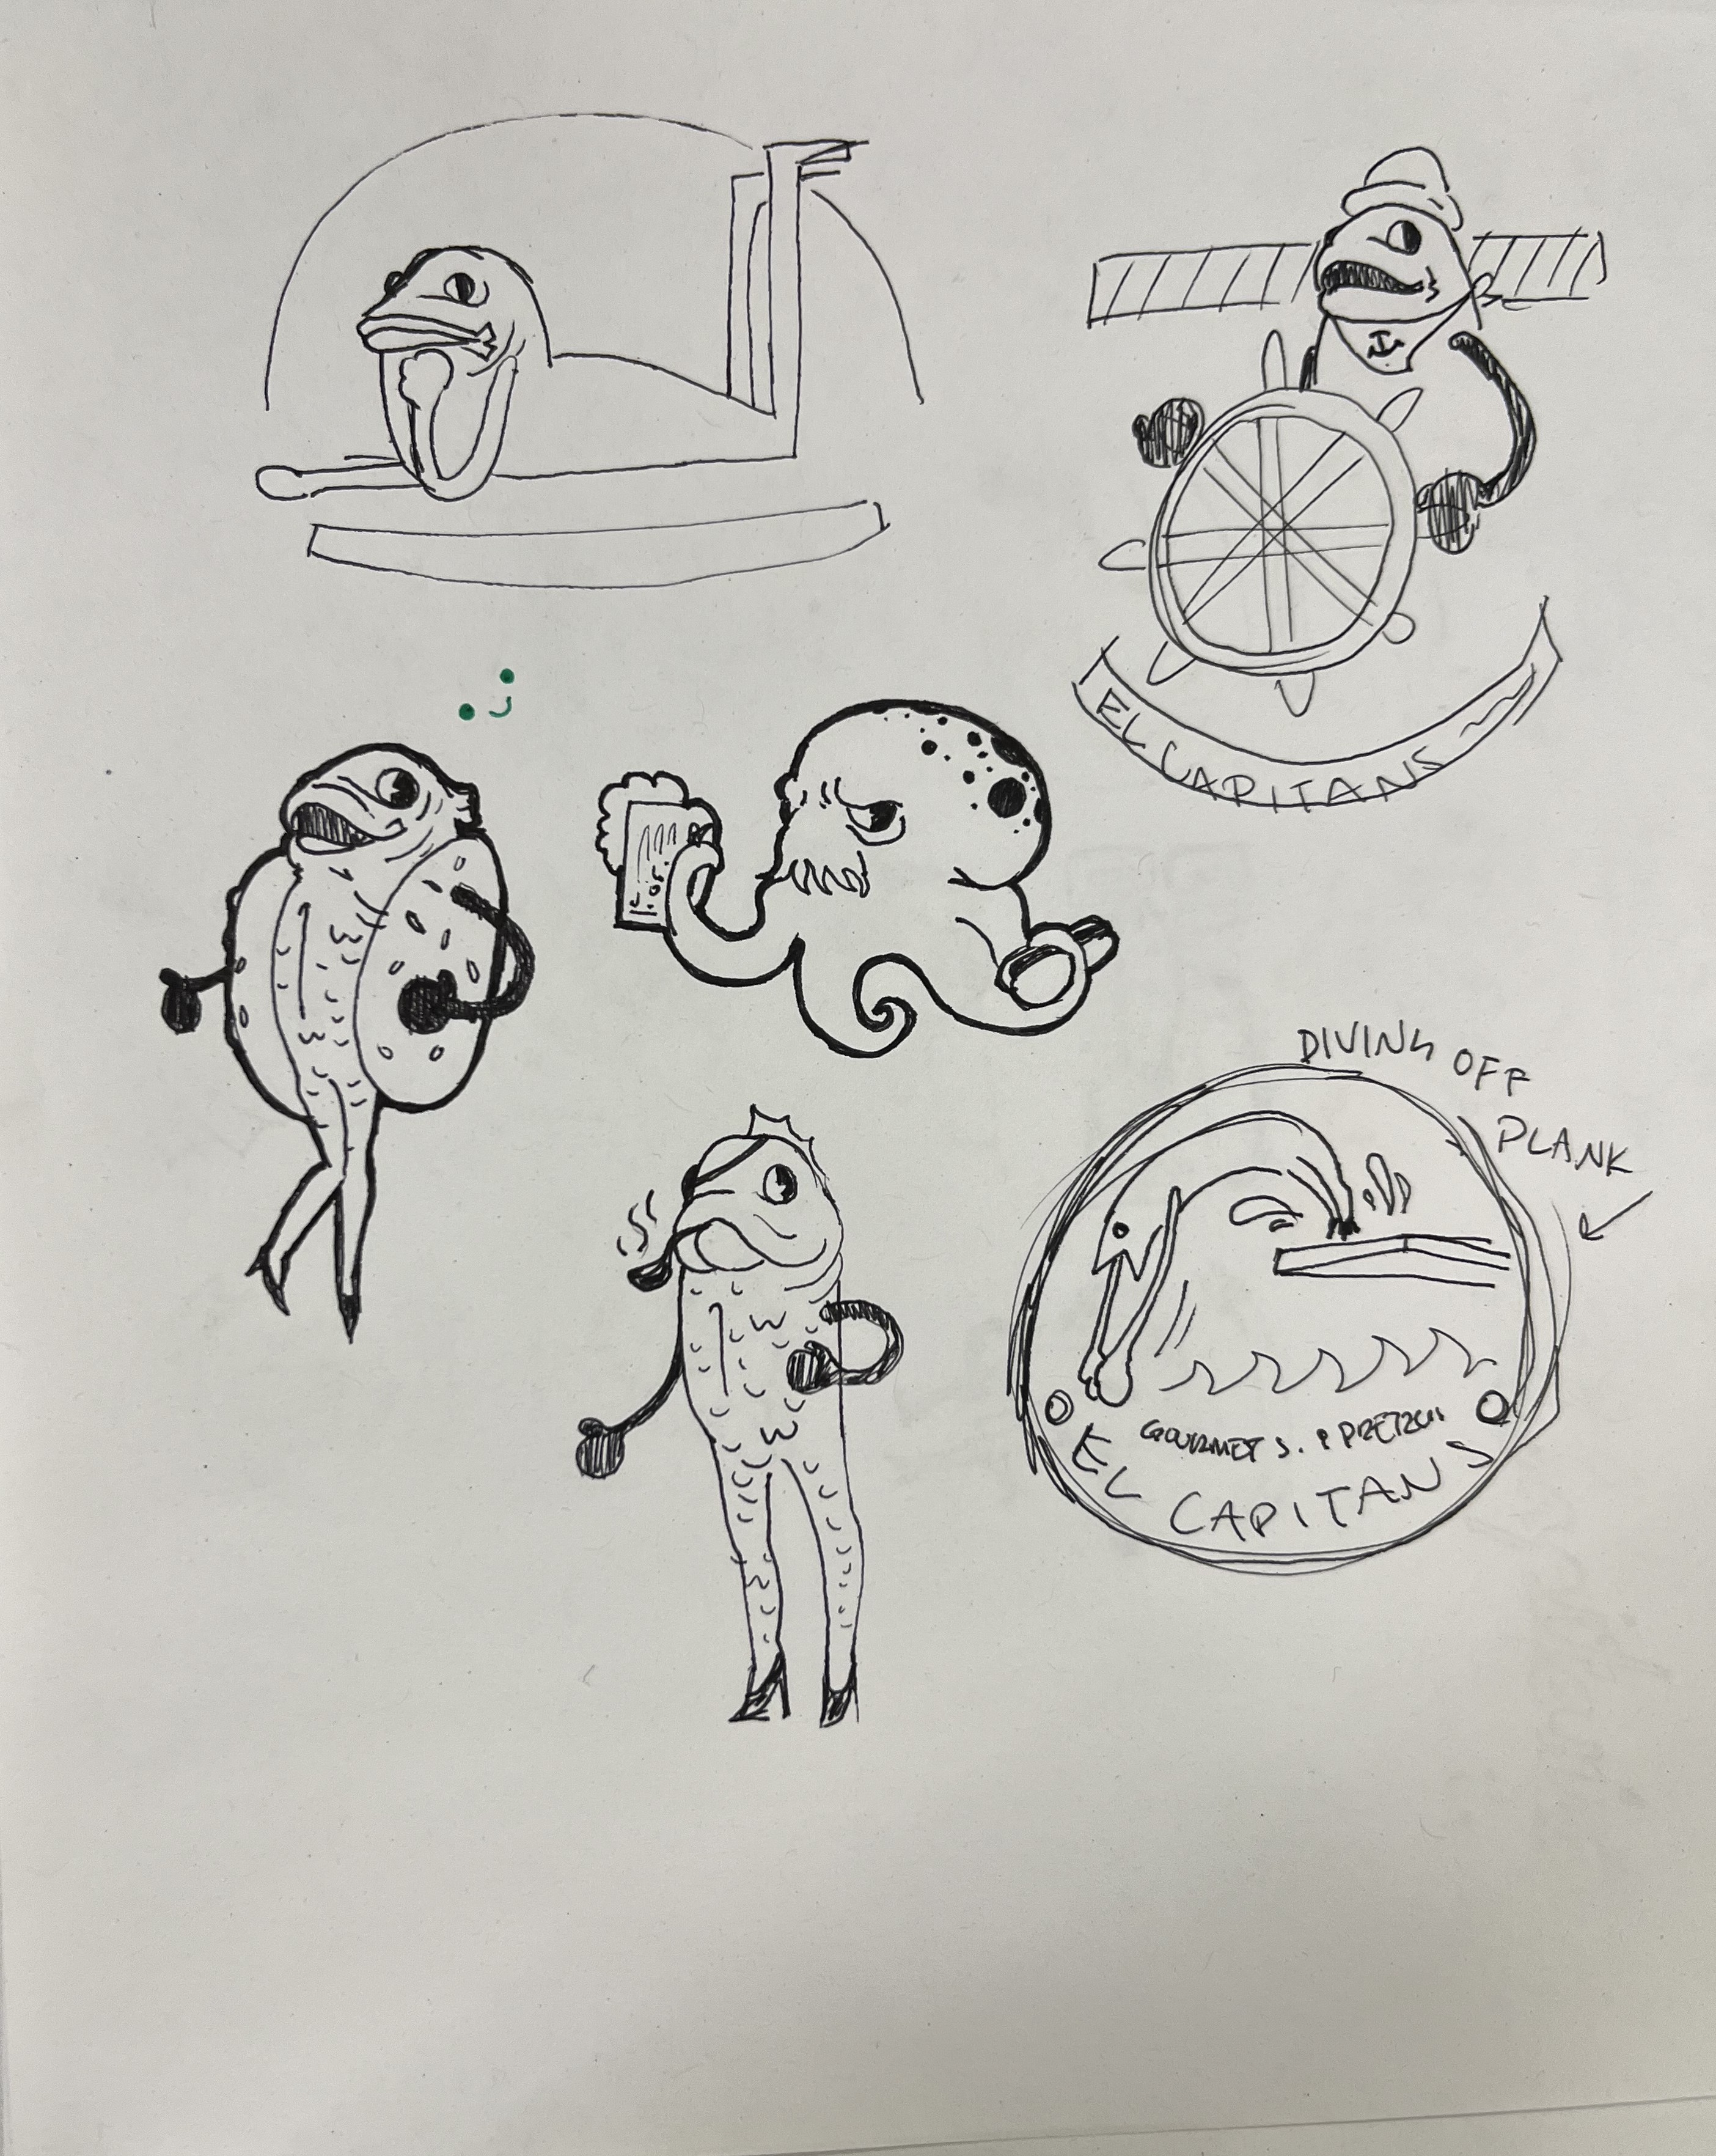 EL CAPITANS
DIVING OFF
PLANK
GOURMET S. P PRETZELS
EL CAPITANS